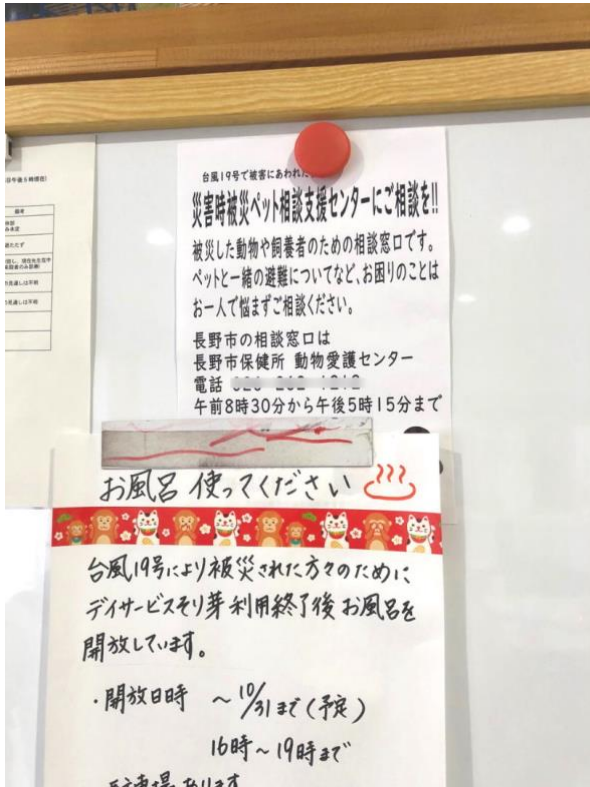 日午後5時現在)
備考
見通しは不明
見通しは不明
台風19号で被害にあわれた
災害時被災ペット相談支援センターにご相談を!!
被災した動物や飼養者のための相談窓口です。
ペットと一緒の避難についてなど、お困りのことは
お一人で悩まずご相談ください。
長野市の相談窓口は
長野市保健所 動物愛護センター
電話
午前8時30分から午後5時15分まで
お風呂 使ってください
台風19号により被災された方々のために
デイサービスそり芽利用終了後 お風呂を
開放しています。
・開放日時 ～10/31まで(予定)
16時～19時まで
・駐車場 あります